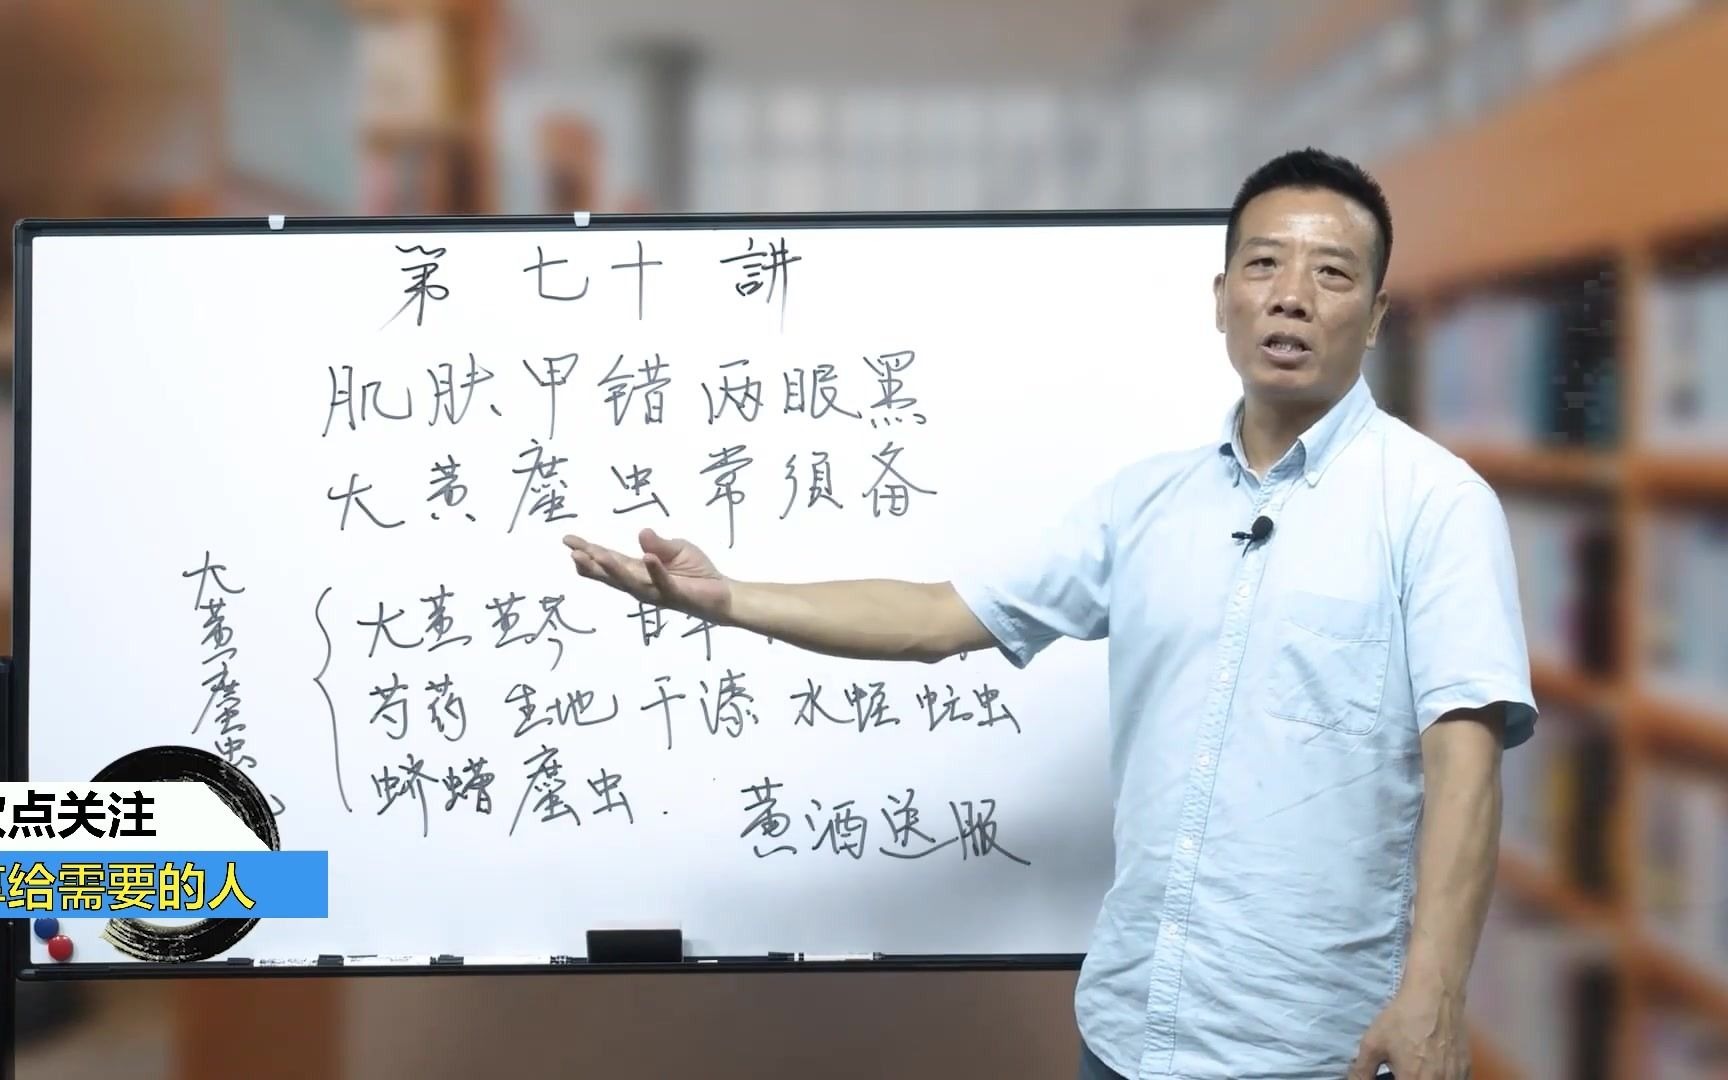 第七十講
肌肤甲错两眼黑
大黄䗪虫常須备
大黄䗪虫
大黄 黄芩 甘草
芍药 生地 干漆 水蛭 虻虫
蛴螬 䗪虫.
黄酒送服
点关注
给需要的人